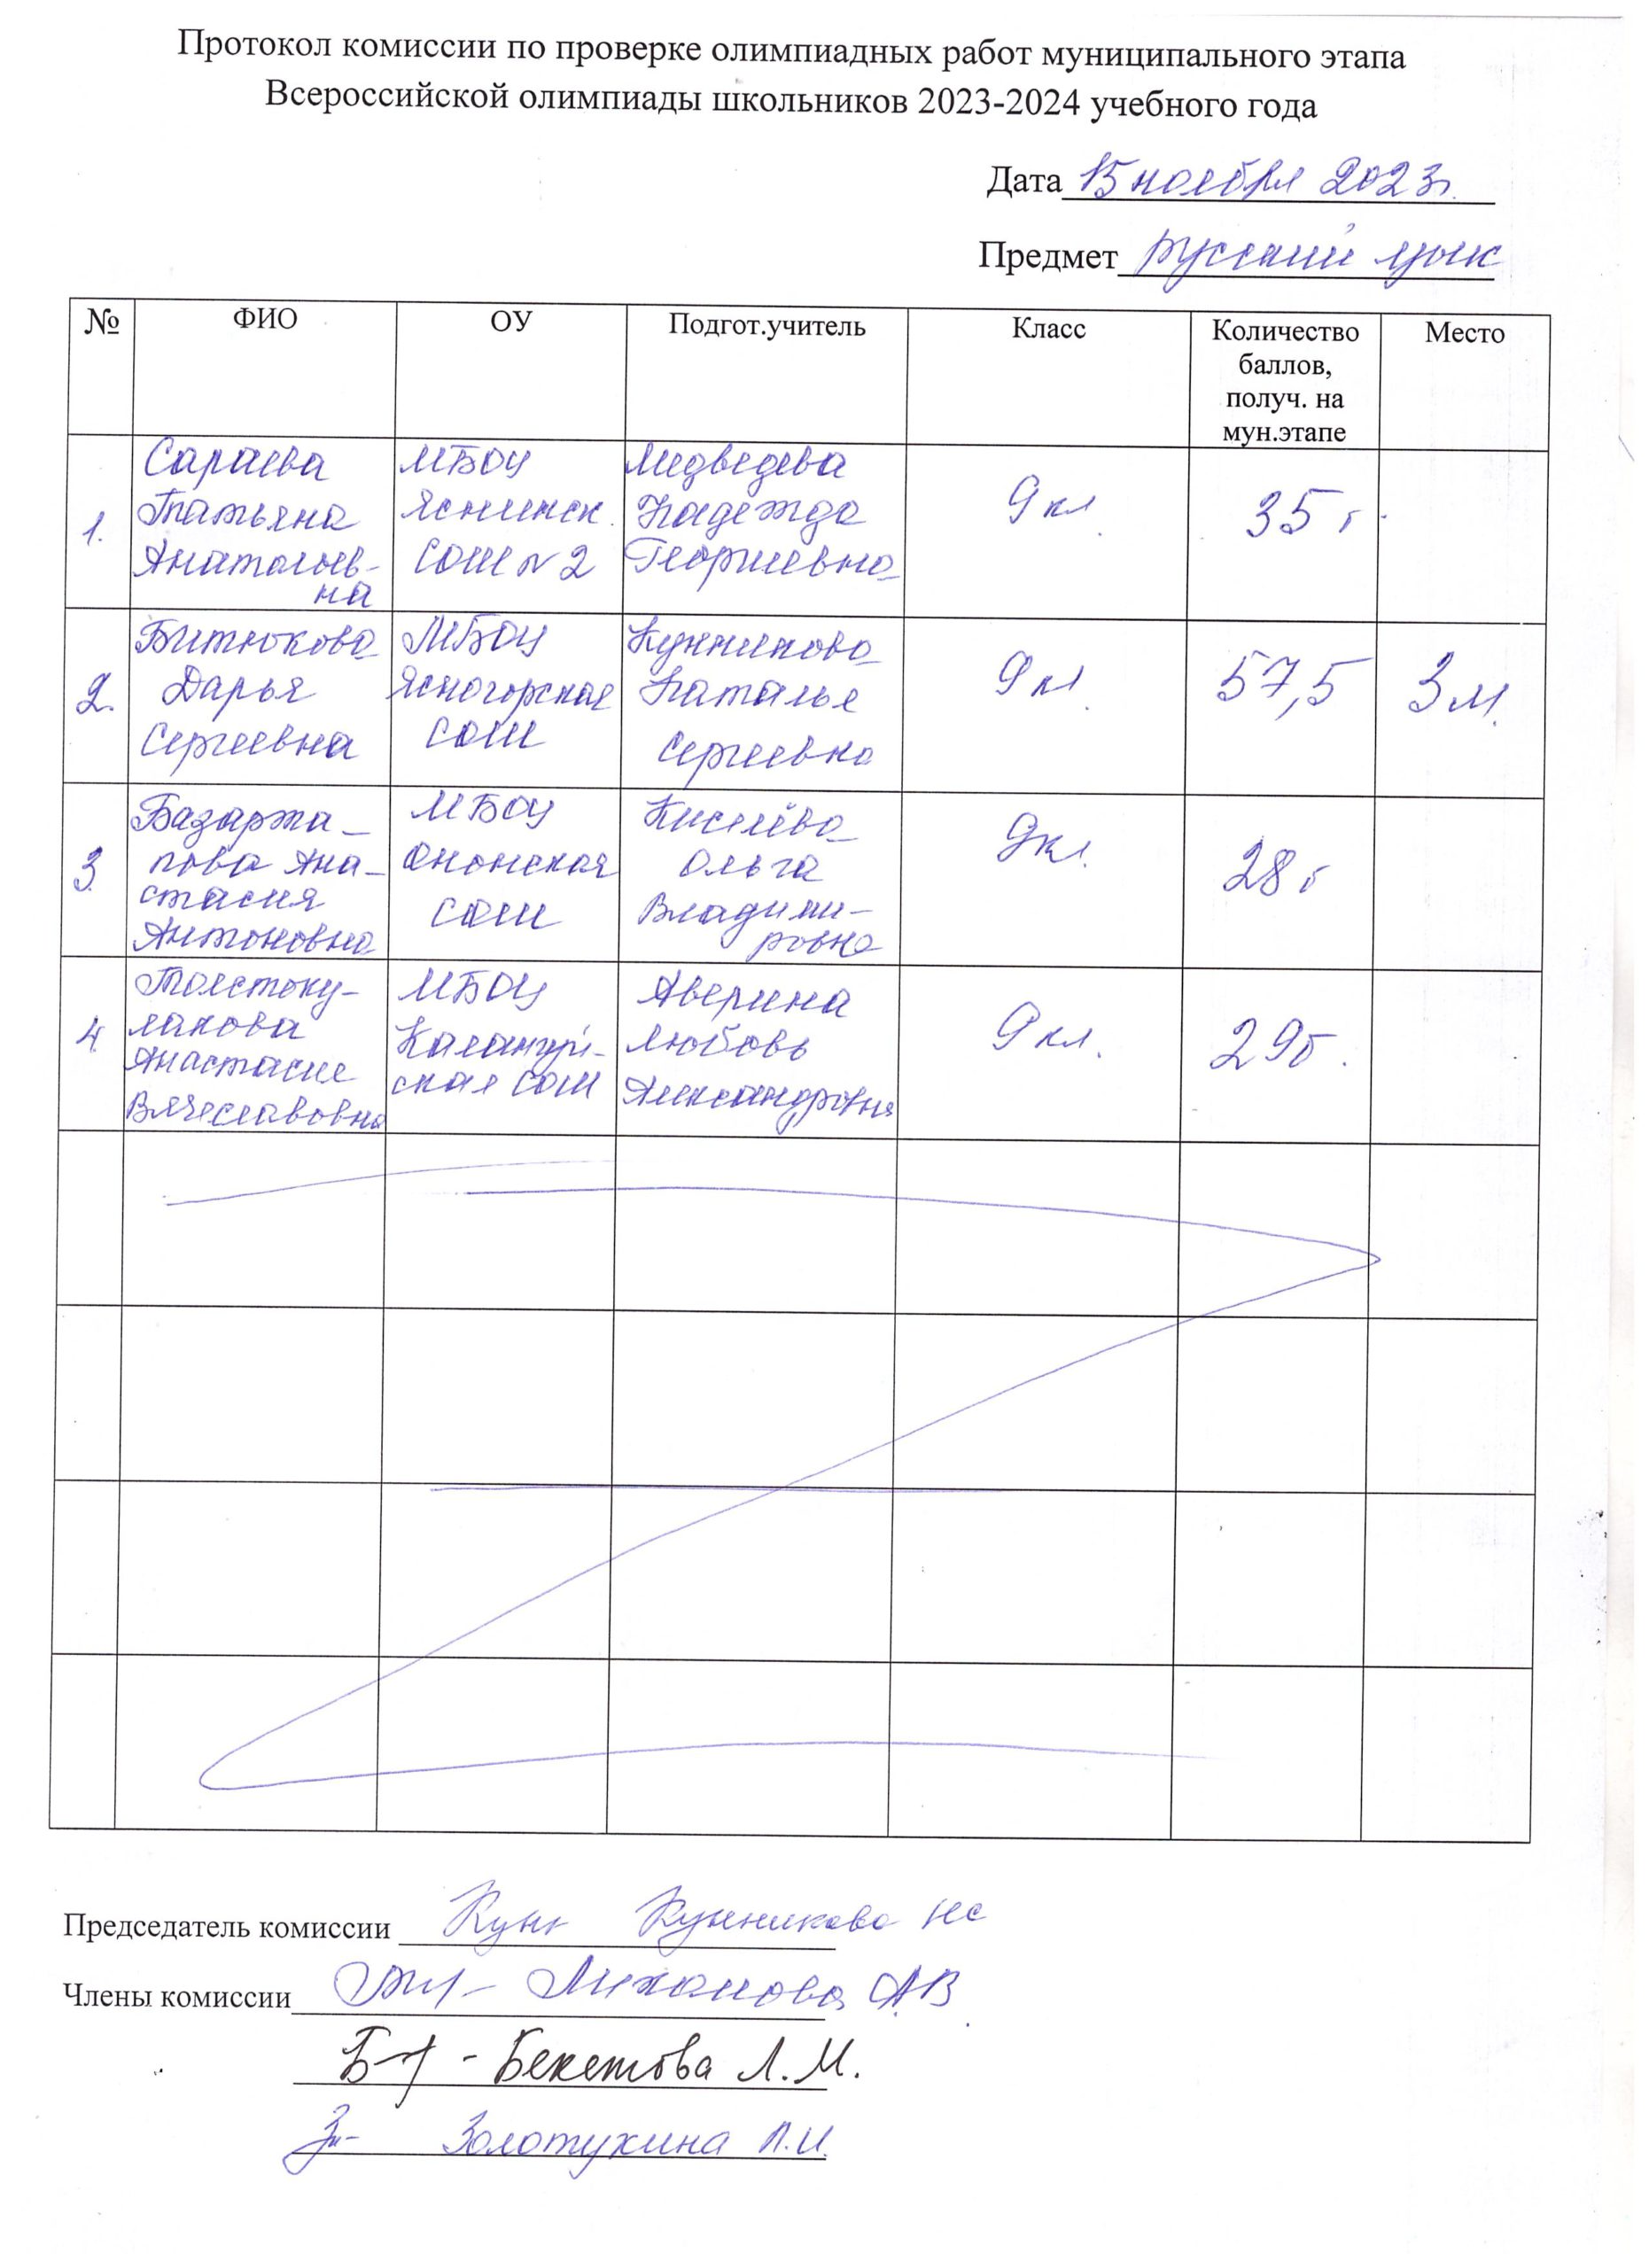 Протокол комиссии по проверке олимпиадных работ муниципального этапа
Всероссийской олимпиады школьников 2023-2024 учебного года
Дата 15 ноября 2023г.
Предмет русский язык
№ ФИО ОУ Подгот.учитель Класс Количество баллов, получ. на мун.этапе Место
1. Сараева Татьяна Анатольев-на МБОУ Яснинск. СОШ №2 Медведева Надежда Георгиевна 9 кл. 35 б.
2. Битюкова Дарья Сергеевна МБОУ Ясногорская СОШ Кунникова Наталья Сергеевна 9 кл. 57,5 3 м.
3. Базаржа-пова Ана-стасия Антоновна МБОУ Ононская СОШ Киселёва Ольга Владими-ровна 9кл. 28 б
4. Толстоку-лакова Анастасия Вячеславовна МБОУ Калангуй-ская СОШ Аверина Любовь Александровна 9 кл. 29б.
Председатель комиссии Кунникова НС
Члены комиссии Лиханова АВ.
Бекетова Л.М.
Золотухина Л.И.